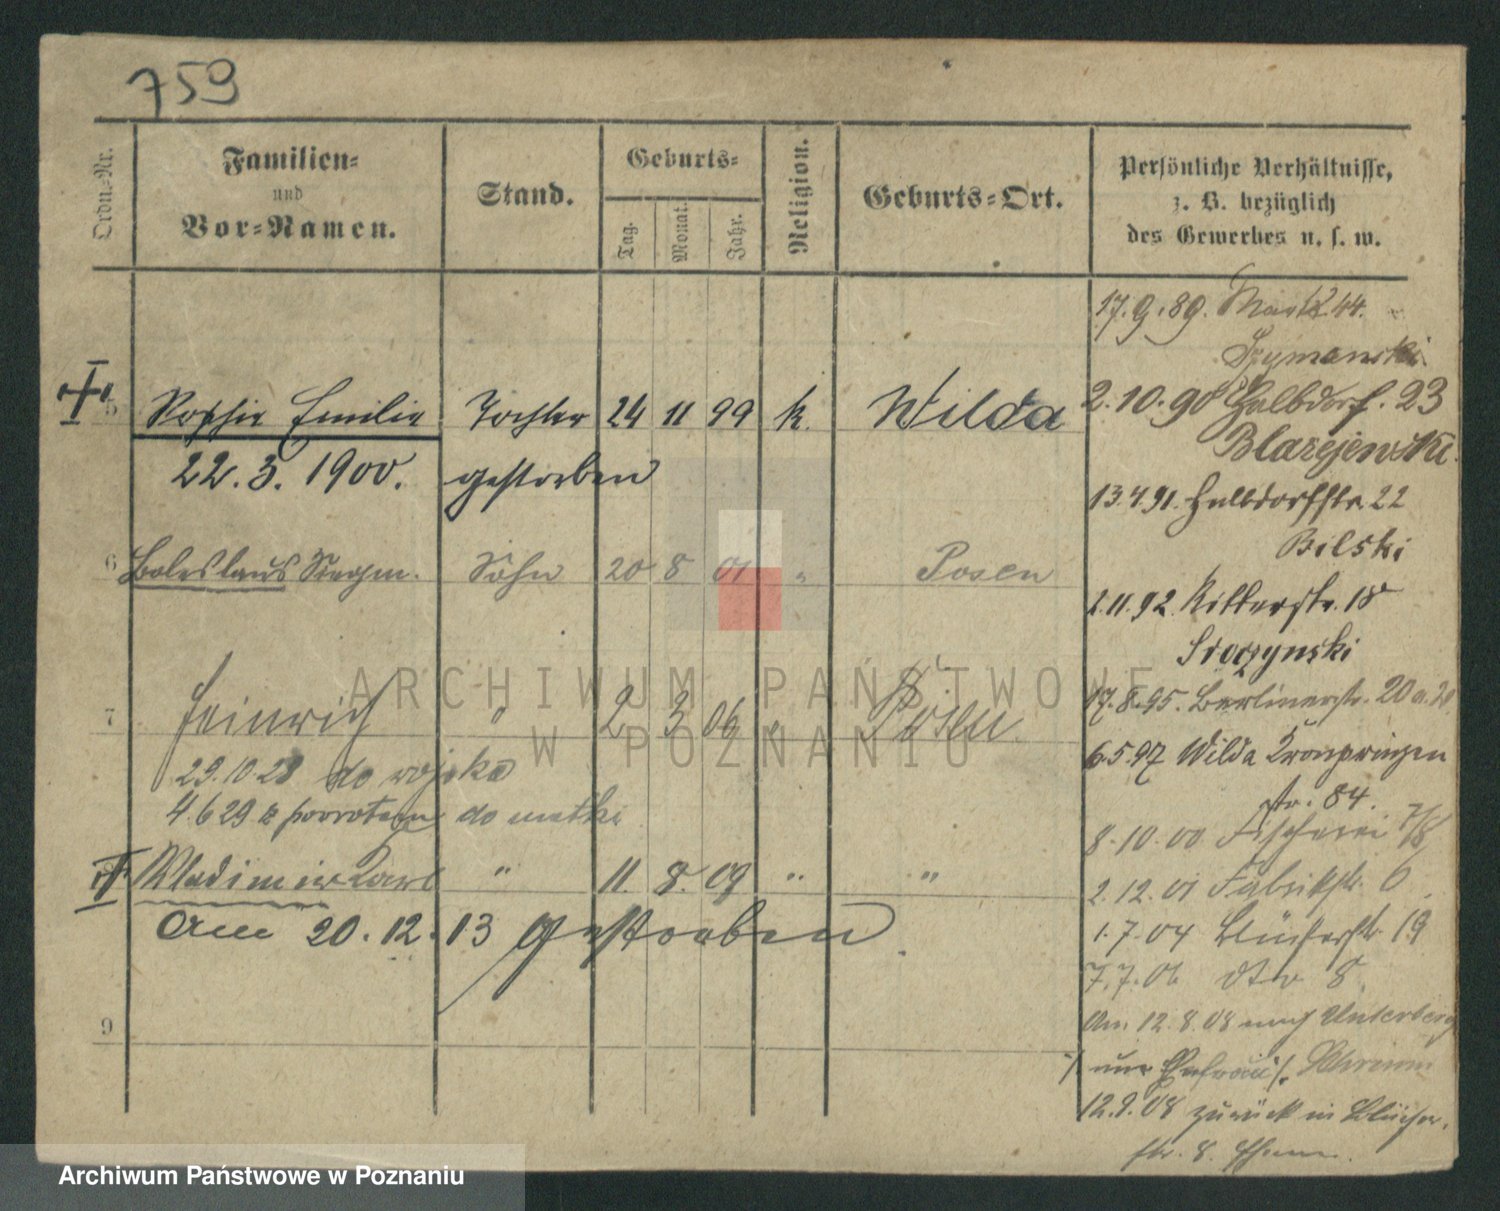 759
Ordn.-Nr.
Familien-
und
Vor-Namen.
Stand.
Geburts-
Tag.
Monat.
Jahr.
Religion.
Geburts-Ort.
Persönliche Verhältnisse,
z. B. bezüglich
des Gewerbes u. s. w.
17.9.89. Markt 44.
Szymanski
2.10.90 Halbdorf. 23
Blazejewski.
13.4.91. Halbdorfstr. 22
Bilski
2.11.92. Ritterstr. 18
Sroczynski
17.8.95. Berlinerstr. 20 a.
6.5.97 Wilda Kronprinzen
str. 84.
8.10.00 Fischerei 7/8
2.12.01 Fabrikstr. 6
1.7.04 Blücherstr. 19
7.7.06 dto 8
Am 12.8.08 nach Unterberg
nur Ehefrau
12.9.08 zurück in Blücher-
str. 8.
5 Sophie Emilie Tochter 24 11 99 k. Wilda
22.3.1900. gestorben
6 Boleslaus Siegm. Sohn 20 8 01 " Posen
7 Heinrich " 2 3 06 " Posen.
29.10.28 do wojska
4.6 29 z powrotem do matki
Wladimir Karl " 11. 8. 09 " "
Am 20.12.13 gestorben.
9
ARCHIWUM PAŃSTWOWE
W POZNANIU
Archiwum Państwowe w Poznaniu